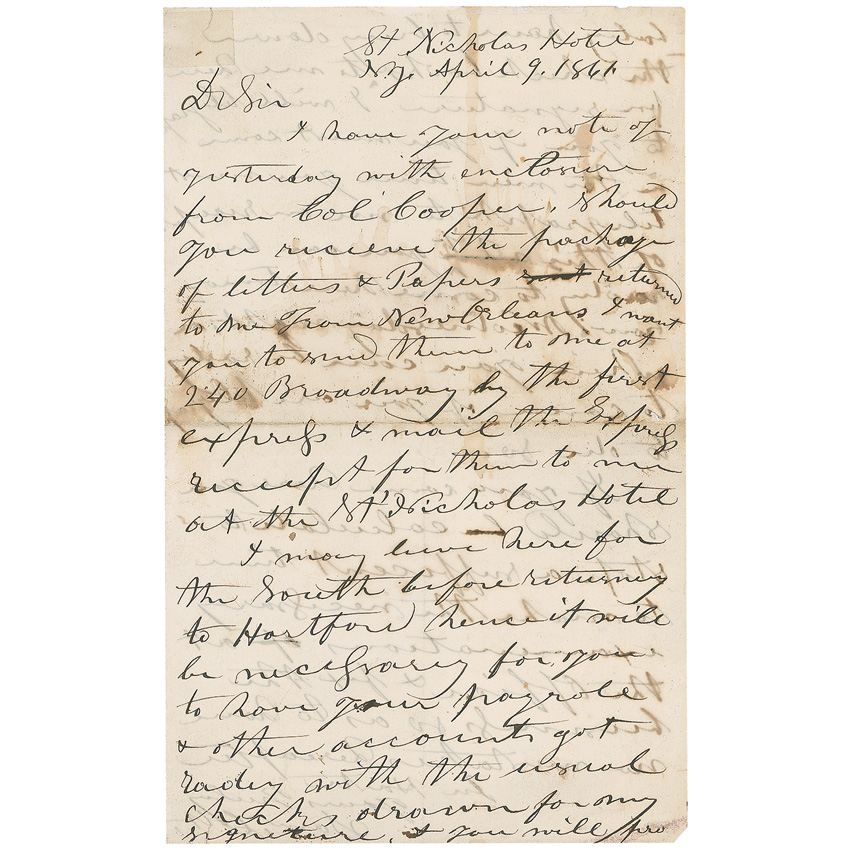 St Nicholas Hotel
N.Y. April 9. 1861.
Dr Sir
I have your note of
yesterday with enclosure
from Col Cooper. Should
you recieve the package
of letters & Papers sent returned
to me from New Orleans I want
you to send them to me at
240 Broadway by the first
express & mail the Express
receipt for them to me
at the St Nicholas Hotel
I may leave here for
the South before returning
to Hartford hence it will
be necessary for you
to have your payrole
& other accounts got
rady with the usual
checks drawn for my
signeture, & you will pro